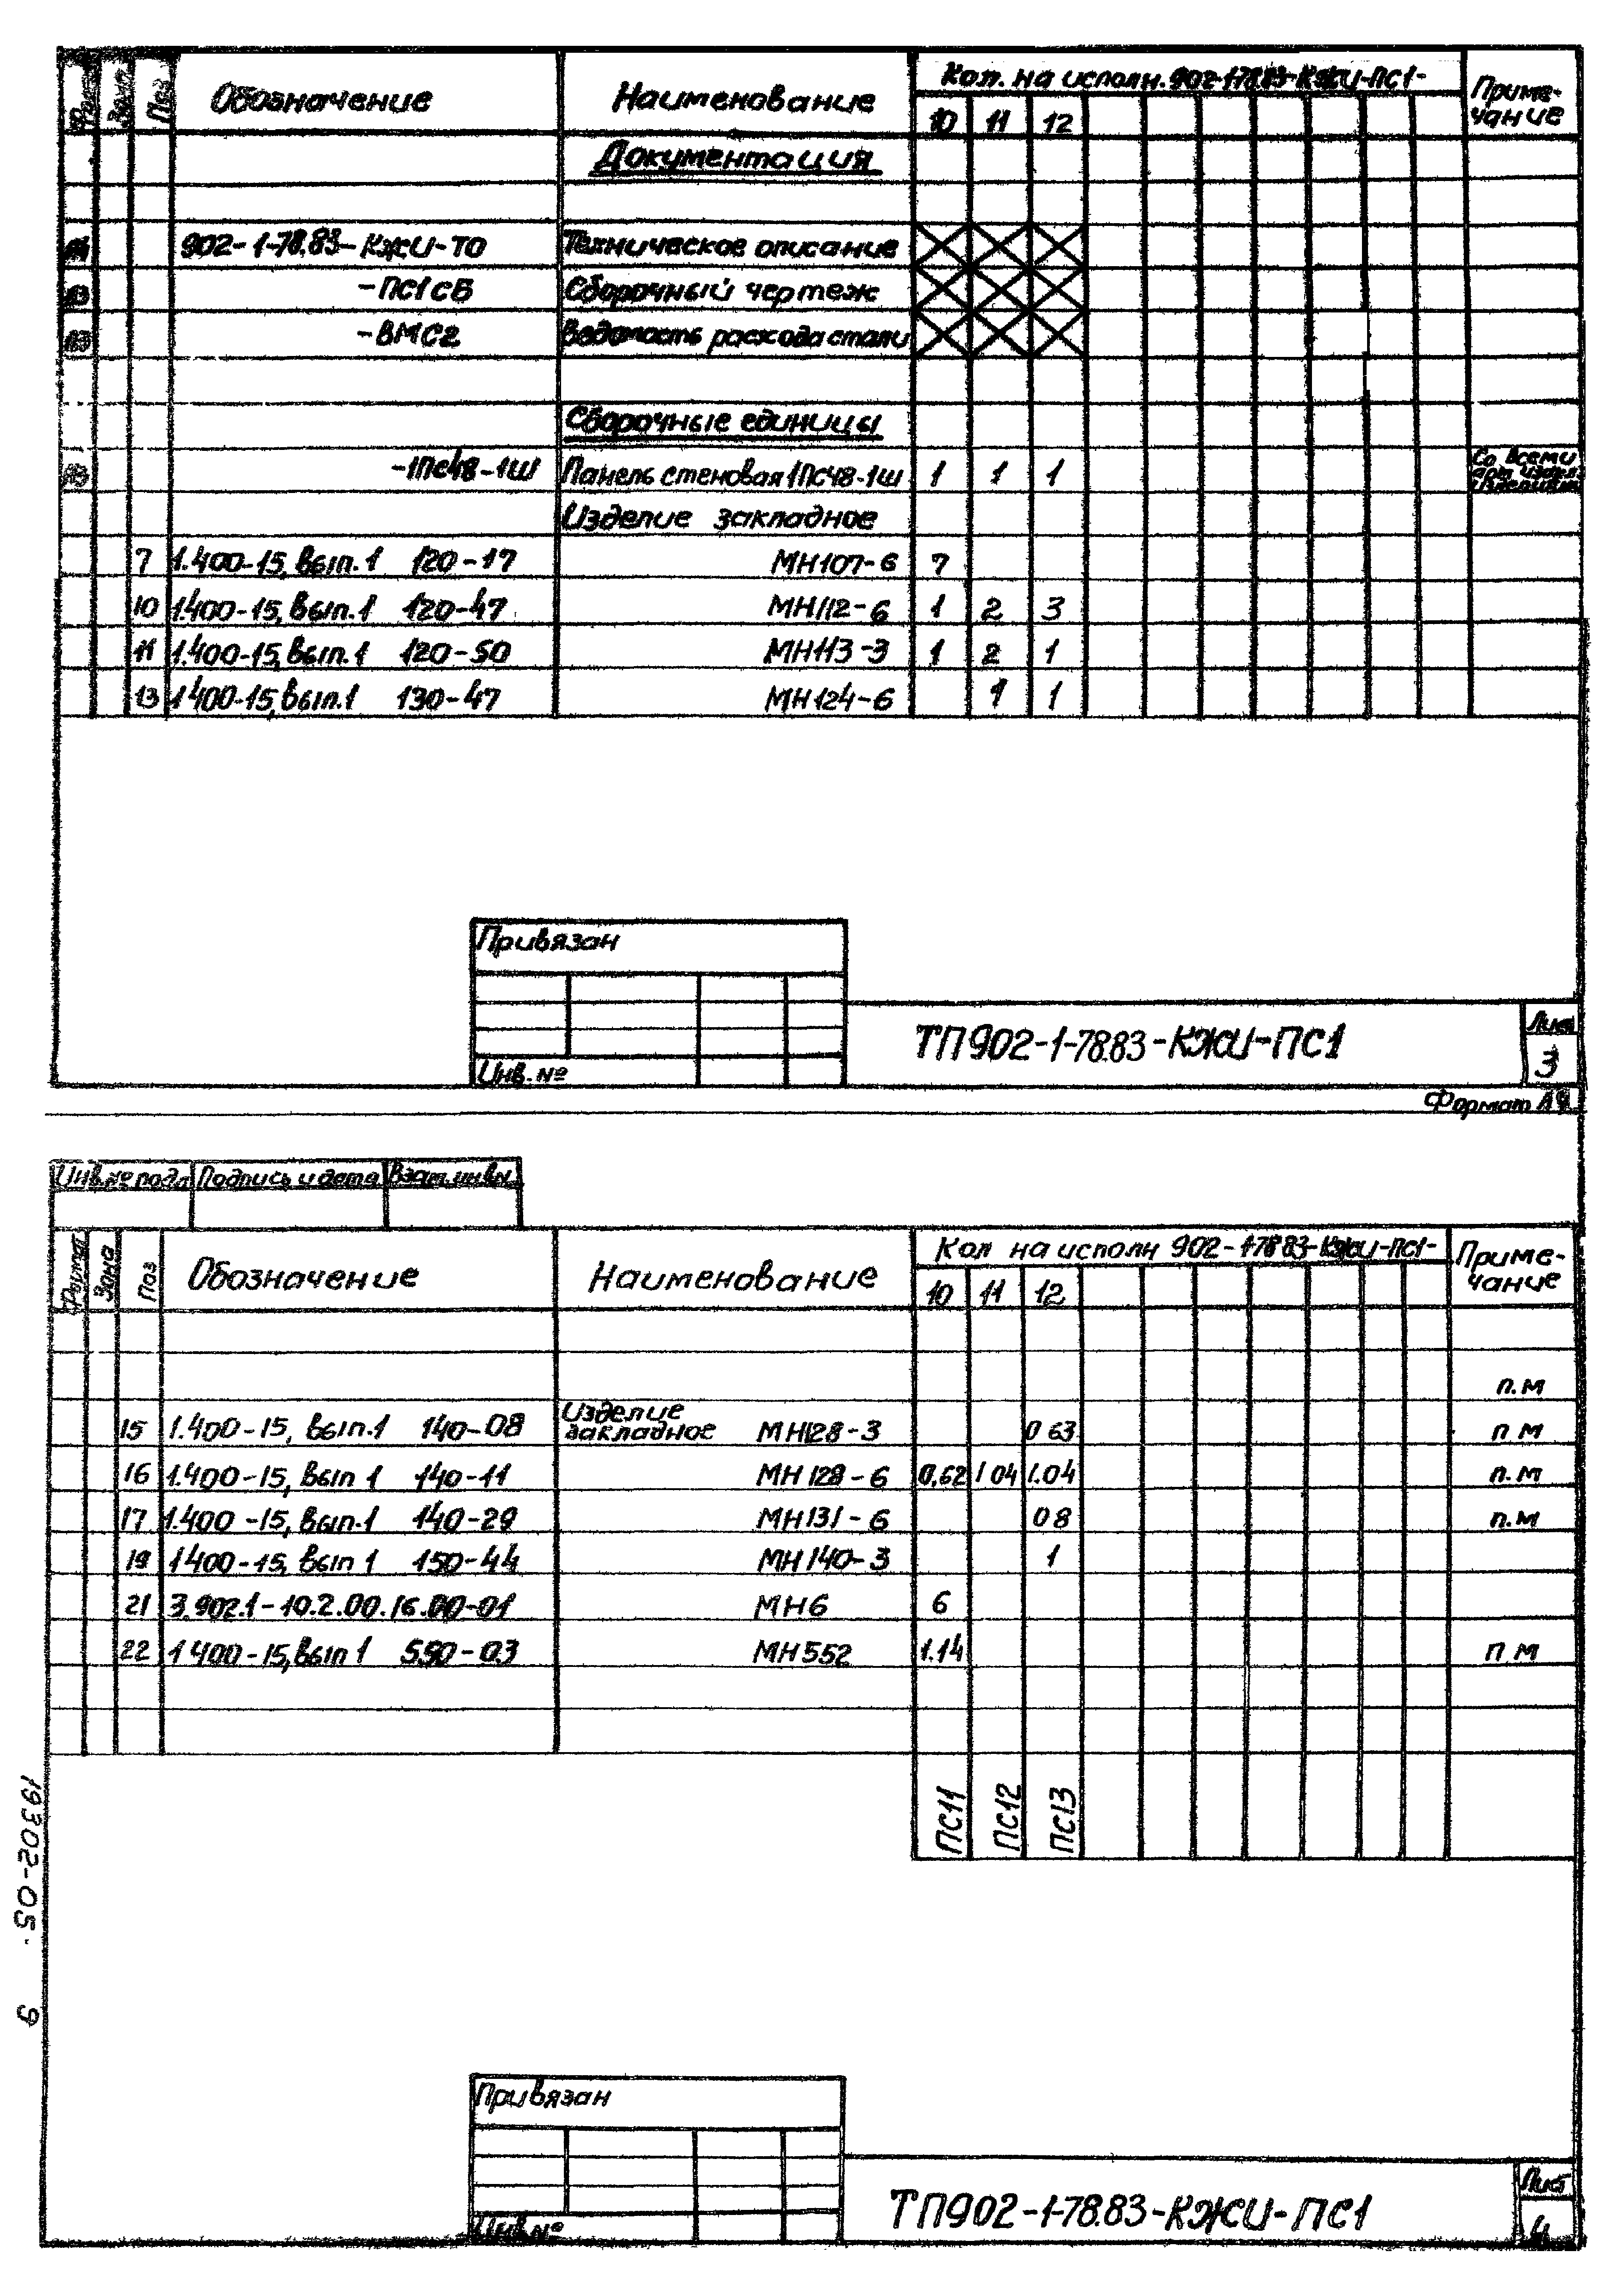 Поз Обозначение Наименование Кол. на исполн. 902-1-78.83-КЖИ-ПС1- Приме-
чание
10 11 12
Документация
902-1-78.83-КЖИ-ТО Техническое описание
-ПС1СБ Сборочный чертеж
-ВМС2 Ведомость расхода стали
Сборочные единицы
-1ПС48-1Ш Панель стеновая 1ПС48-1Ш 1 1 1 Со всеми
Изделие закладное
7 1.400-15, вып.1 120-17 МН107-6 7
10 1.400-15, вып.1 120-47 МН112-6 1 2 3
11 1.400-15, вып.1 120-50 МН113-3 1 2 1
13 1400-15, вып.1 130-47 МН124-6 1 1
Привязан
Инв. №
ТП902-1-78.83-КЖИ-ПС1
Лист
3
Формат А4
Инв.№ подл Подпись и дата Взам.инв.№
Формат Зона Поз Обозначение Наименование Кол на исполн 902-1-78.83-КЖИ-ПС1- Приме-
чание
10 11 12
п.м
15 1.400-15, вып.1 140-08 Изделие
закладное МН128-3 0 63 п м
16 1.400-15, вып 1 140-11 МН 128-6 0,62 1 04 1.04 п.м
17 1.400-15, вып.1 140-29 МН131-6 0 8 п.м
19 1400-15, вып 1 150-44 МН 140-3 1
21 3.902.1-10.2.00.16.00-01 МН6 6
22 1 400-15, вып 1 550-03 МН552 1.14 п м
ПС11 ПС12 ПС13
19302-05. 9
Привязан
Инв.№
ТП902-1-78.83-КЖИ-ПС1
Лист
4